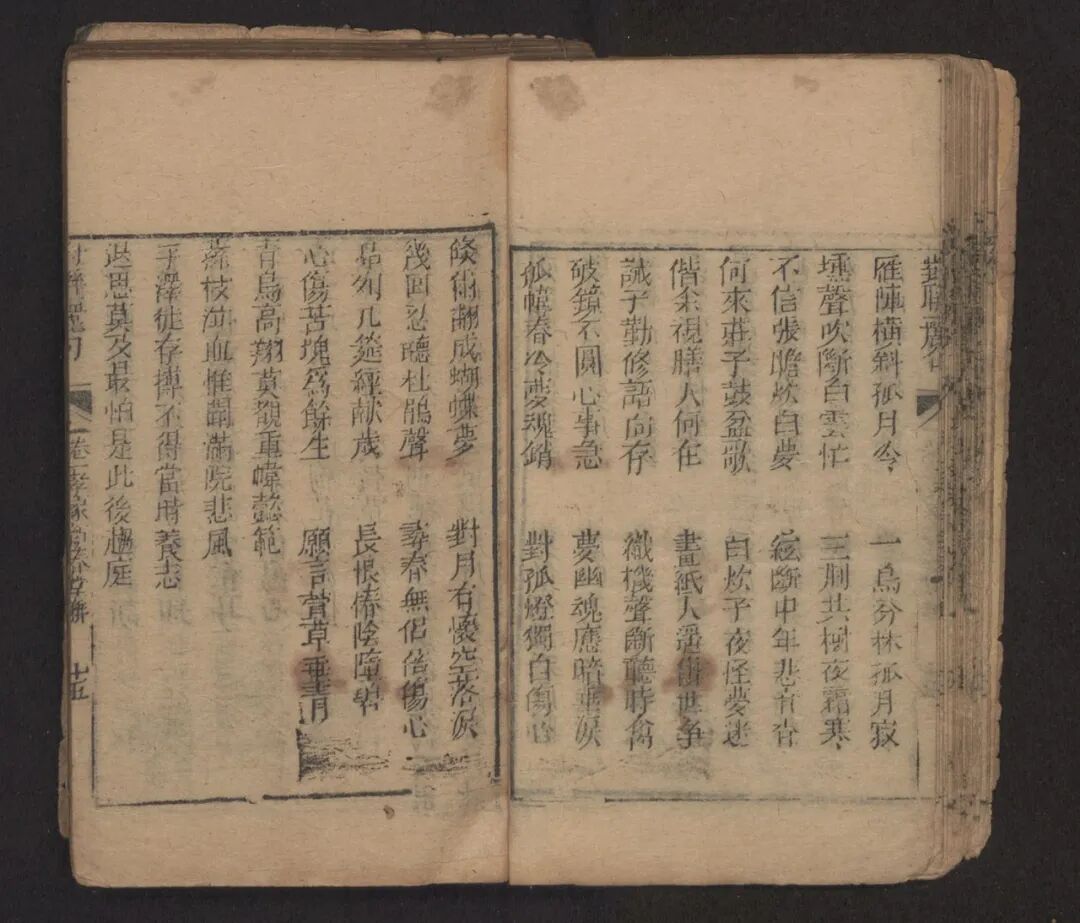 對聯廣
雁陣橫斜孤月令 一烏分林孤月寂
壎聲吹斷白雲忙 三荊共樹夜霜寒
不信張瞻炊臼夢 絃斷中年悲音杳
何來莊子鼓盆歌 臼炊子夜怪夢迷
偕余視膳人何在 畫紙人遥
誡子勤修語向存 織機聲斷聽時禽
破鏡不圓心事急 夢幽魂應暗垂淚
孤幃春冷夢魂銷 對孤燈獨自傷心
倐爾翻成蝴蝶夢 對月有懷空落淚
幾回忍聽杜鵑聲 尋春無侣倍傷心
昂列几筵經献歲 長恨椿陰隕碧
心傷苫塊爲餘生 願言萱草垂青
青鳥高翔莫覩重幃懿範
蕪枝泣血惟聞滿院悲風
手澤徒存摶不得當時養志
退思莫及最怕是此後趨庭
卷 十五